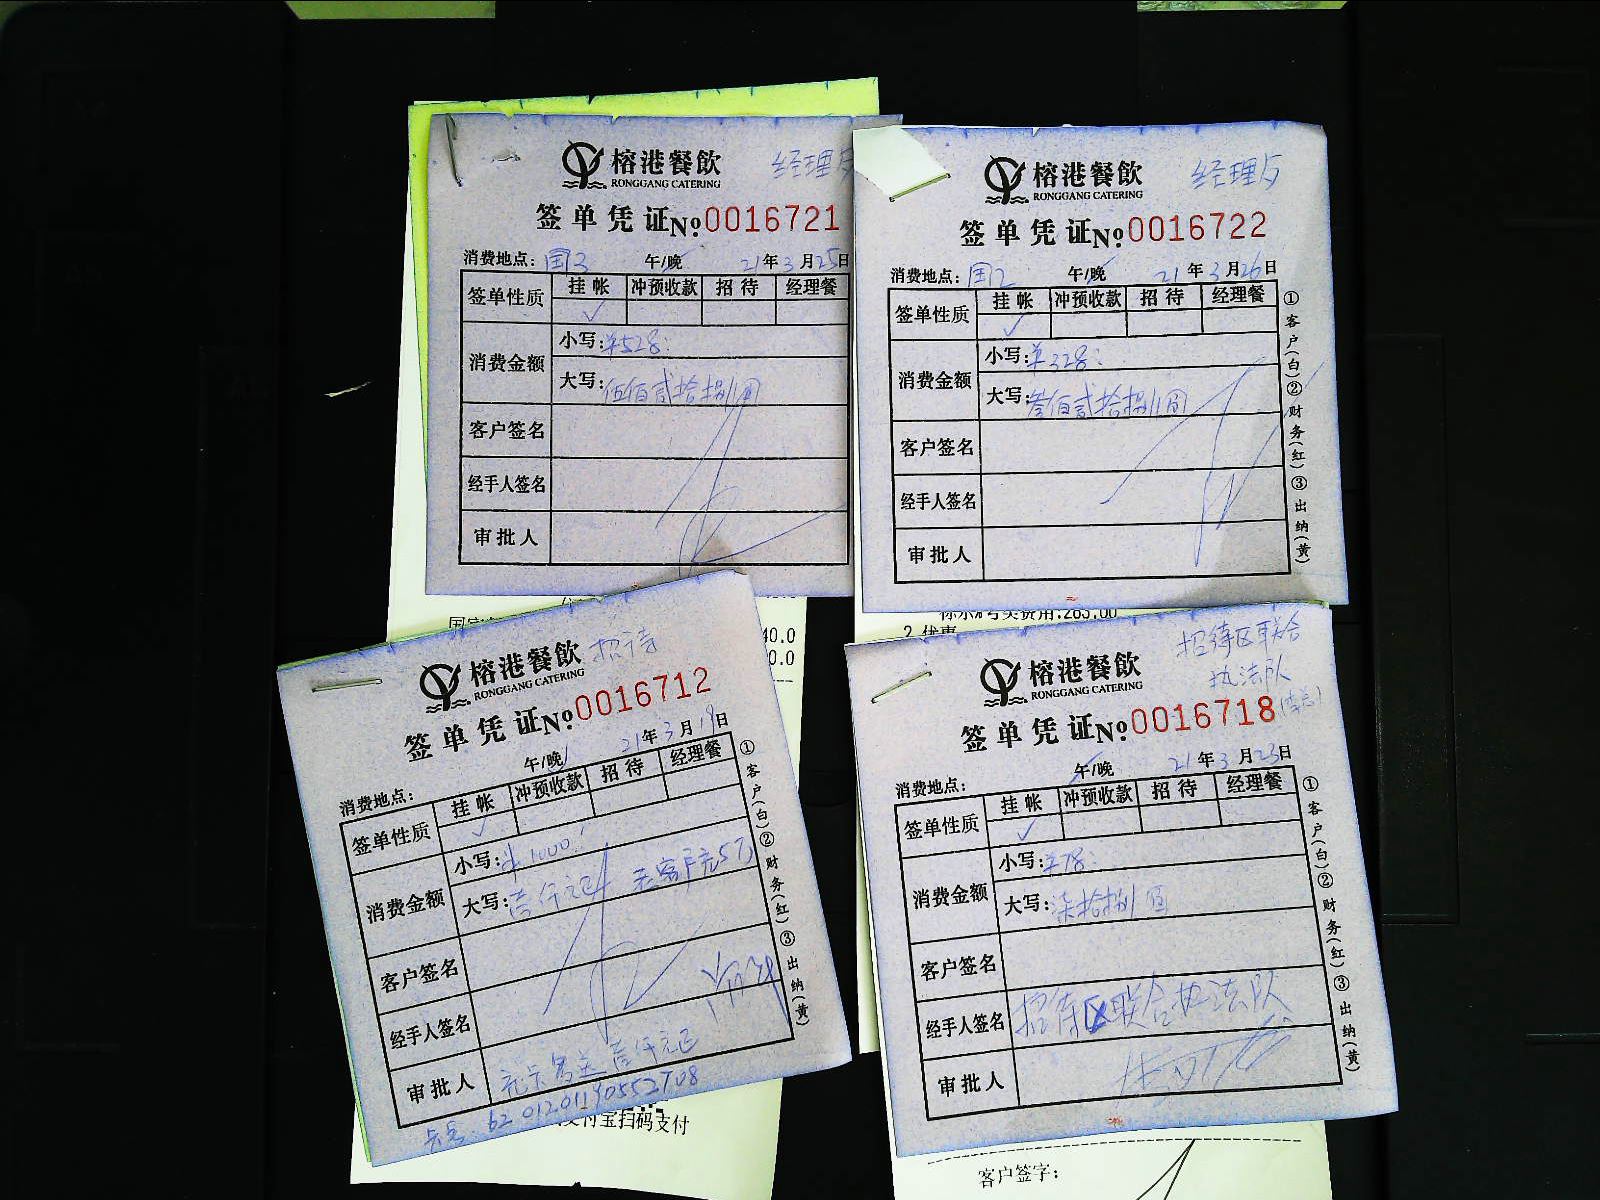 榕港餐飲 经理
RONGGANG CATERING
签单凭证 №0016721
消费地点: 国3 午/晚 21年3月25日
签单性质 挂帐 冲预收款 招待 经理餐
✓
消费金额 小写: ¥528:
大写: 伍佰贰拾捌圆
客户签名
经手人签名
审批人
榕港餐飲 经理
RONGGANG CATERING
签单凭证 №0016722
消费地点: 国2 午/晚 21年3月26日
签单性质 挂帐 冲预收款 招待 经理餐
✓
消费金额 小写: ¥328:
大写: 叁佰贰拾捌圆
客户签名
经手人签名
审批人
①客户(白)②财务(红)③出纳(黄)
40.0
0.0
榕港餐飲 招待
RONGGANG CATERING
签单凭证 №0016712
消费地点: 午/晚 21年3月19日
签单性质 挂帐 冲预收款 招待 经理餐
✓
消费金额 小写: ¥1000:
大写: 壹仟元正 客户充5万
客户签名
经手人签名
审批人 壹仟元正
卡号:
①客户(白)②财务(红)③出纳(黄)
支付宝扫码支付
号类费用:265.00
2.优惠
榕港餐飲 招待区联合
执法队
RONGGANG CATERING
签单凭证 №0016718
消费地点: 午/晚 21年3月23日
签单性质 挂帐 冲预收款 招待 经理餐
✓
消费金额 小写: ¥78:
大写: 柒拾捌
客户签名
经手人签名 招待区联合执法队
审批人
①客户(白)②财务(红)③出纳(黄)
客户签字: